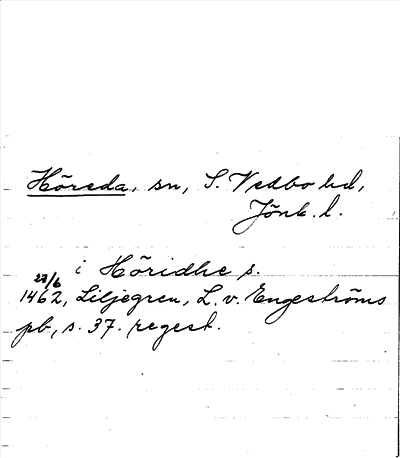 Höreda, sn, S. Vedbo hd,
Jönk. l.
i Höridhe s.
27/6
1462, Liljegren, L. v. Engeströms
pb, s. 37. regest.